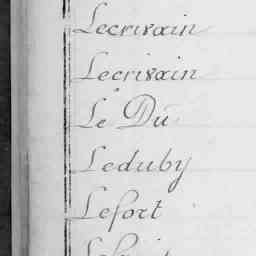 Lecrivain
Lecrivain
Le Du
Leduby
Lefort